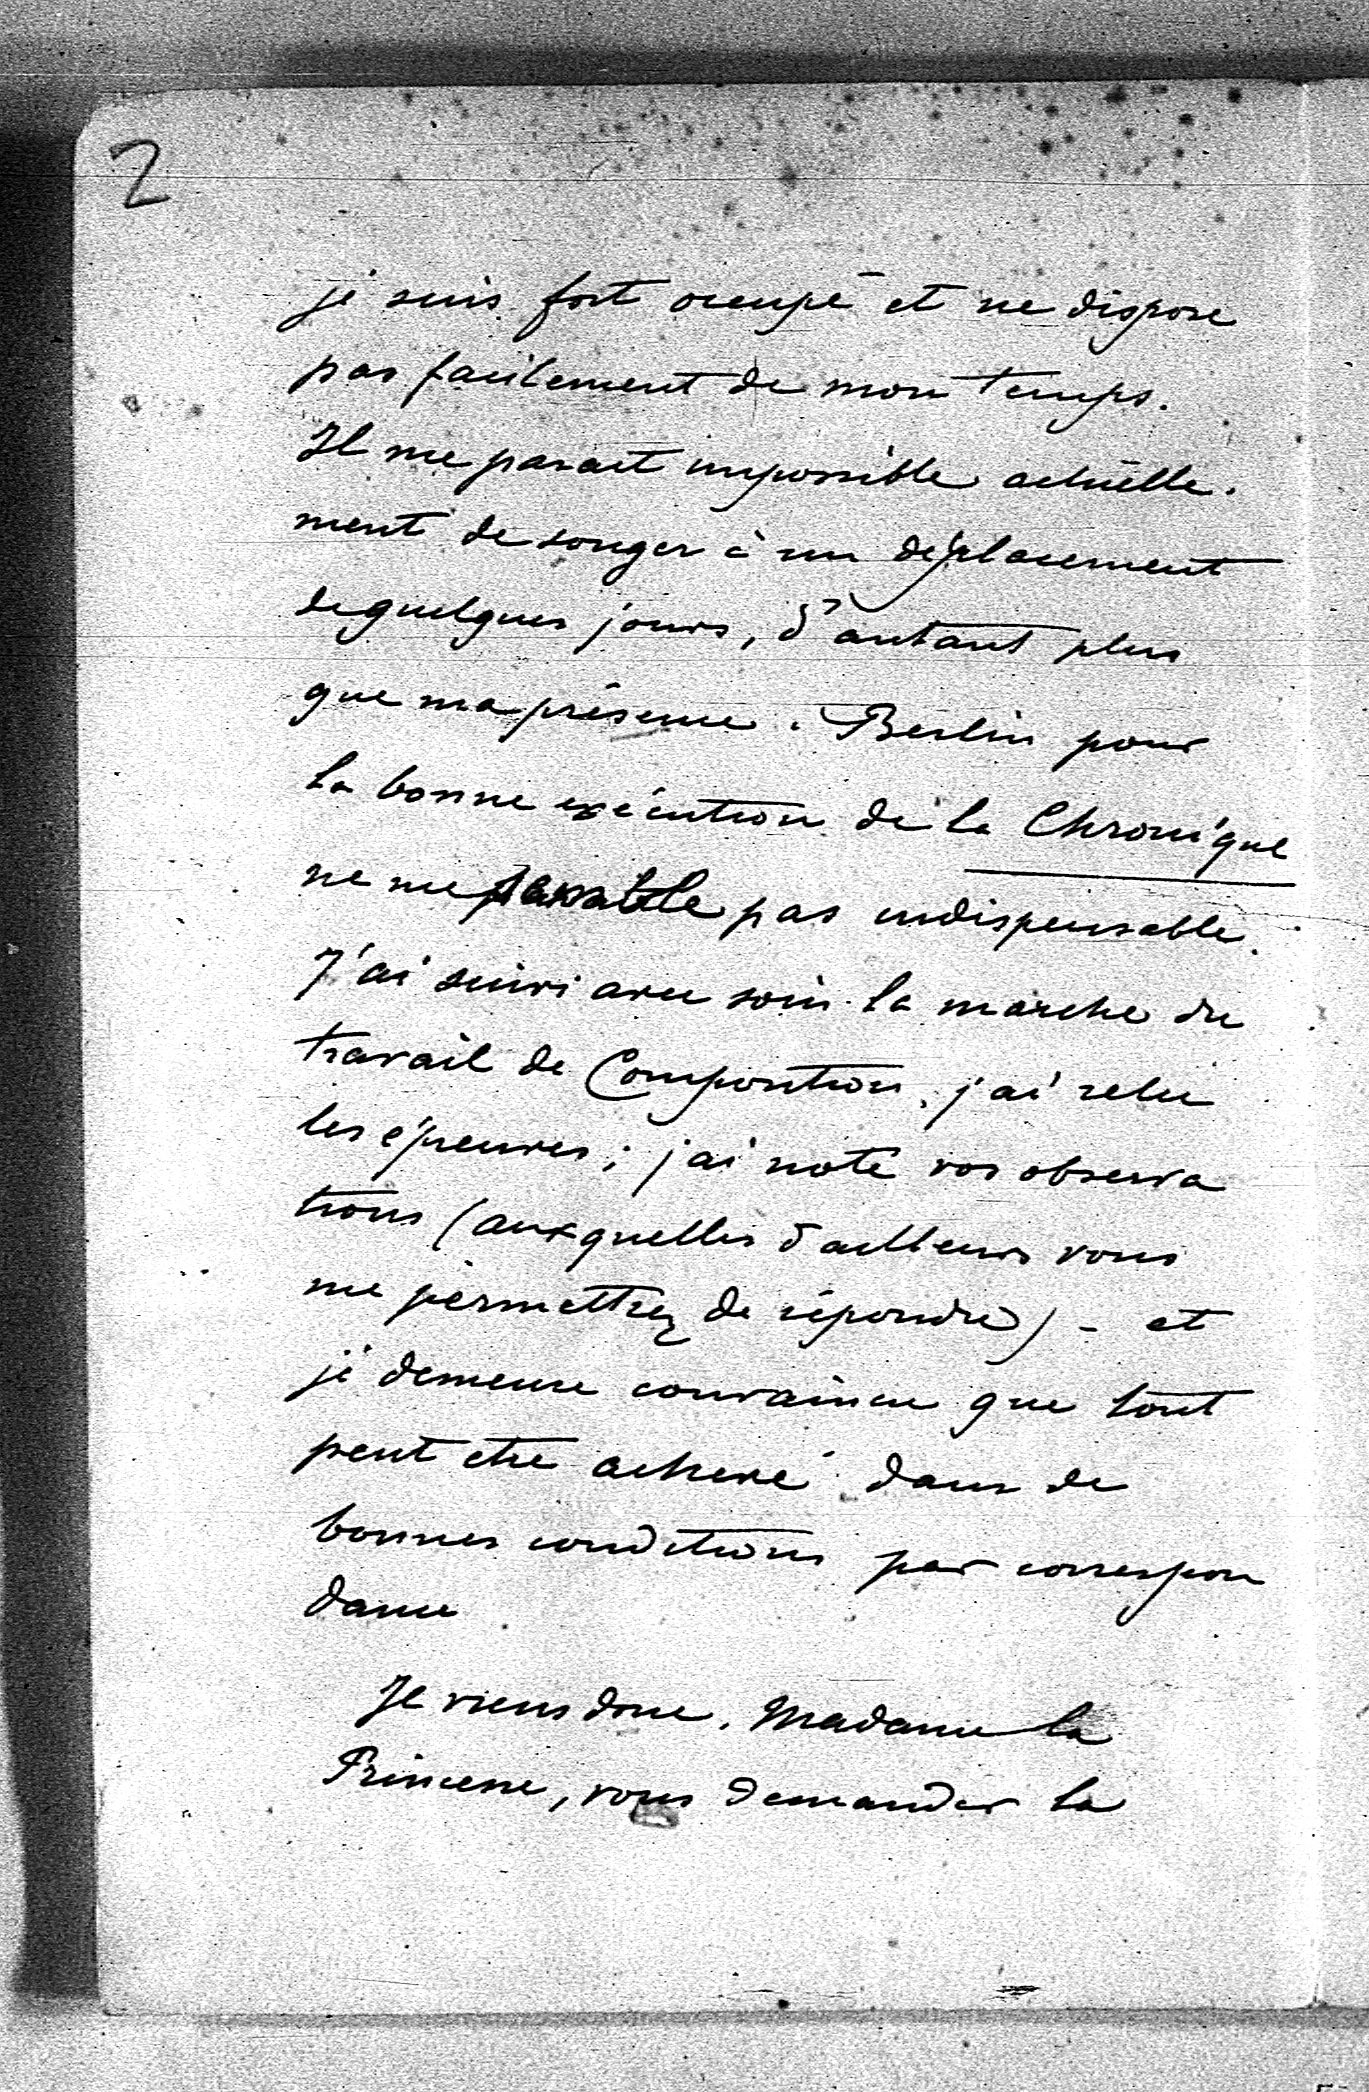 2
je suis fort occupé et ne dispose
pas facilement de mon temps.
Il me parait impossible actuelle-
ment de songer à un déplacement
de quelques jours, d'autant plus
que ma présence à Berlin pour
la bonne exécution de la Chronique
ne me semble pas indispensable.
J'ai suivi avec soin la marche du
travail de Composition, j'ai relu
les épreuves ; j'ai noté vos observa
tions (auxquelles d'ailleurs vous
me permettrez de répondre) - et
je demeure convaincu que tout
peut etre achevé dans de
bonnes conditions par correspon
dance
Je viens donc, Madame la
Princesse, vous demander la